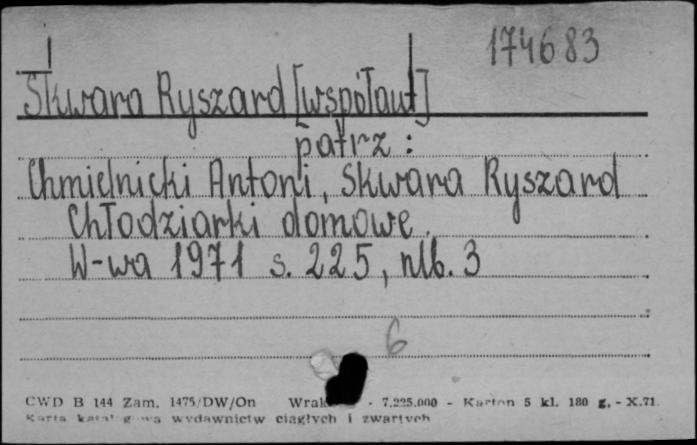 174683
Skwara Ryszard [współaut]
patrz:
Chmielnicki Antoni, Skwara Ryszard
Chłodziarki domowe.
W-wa 1971 s. 225, nlb. 3
6
CWD B 144 Zam. 1475/DW/On - 7.225.000 - Karton 5 kl. 180 g. - X.71.
Karta wydawnictw ciągłych i zwartych